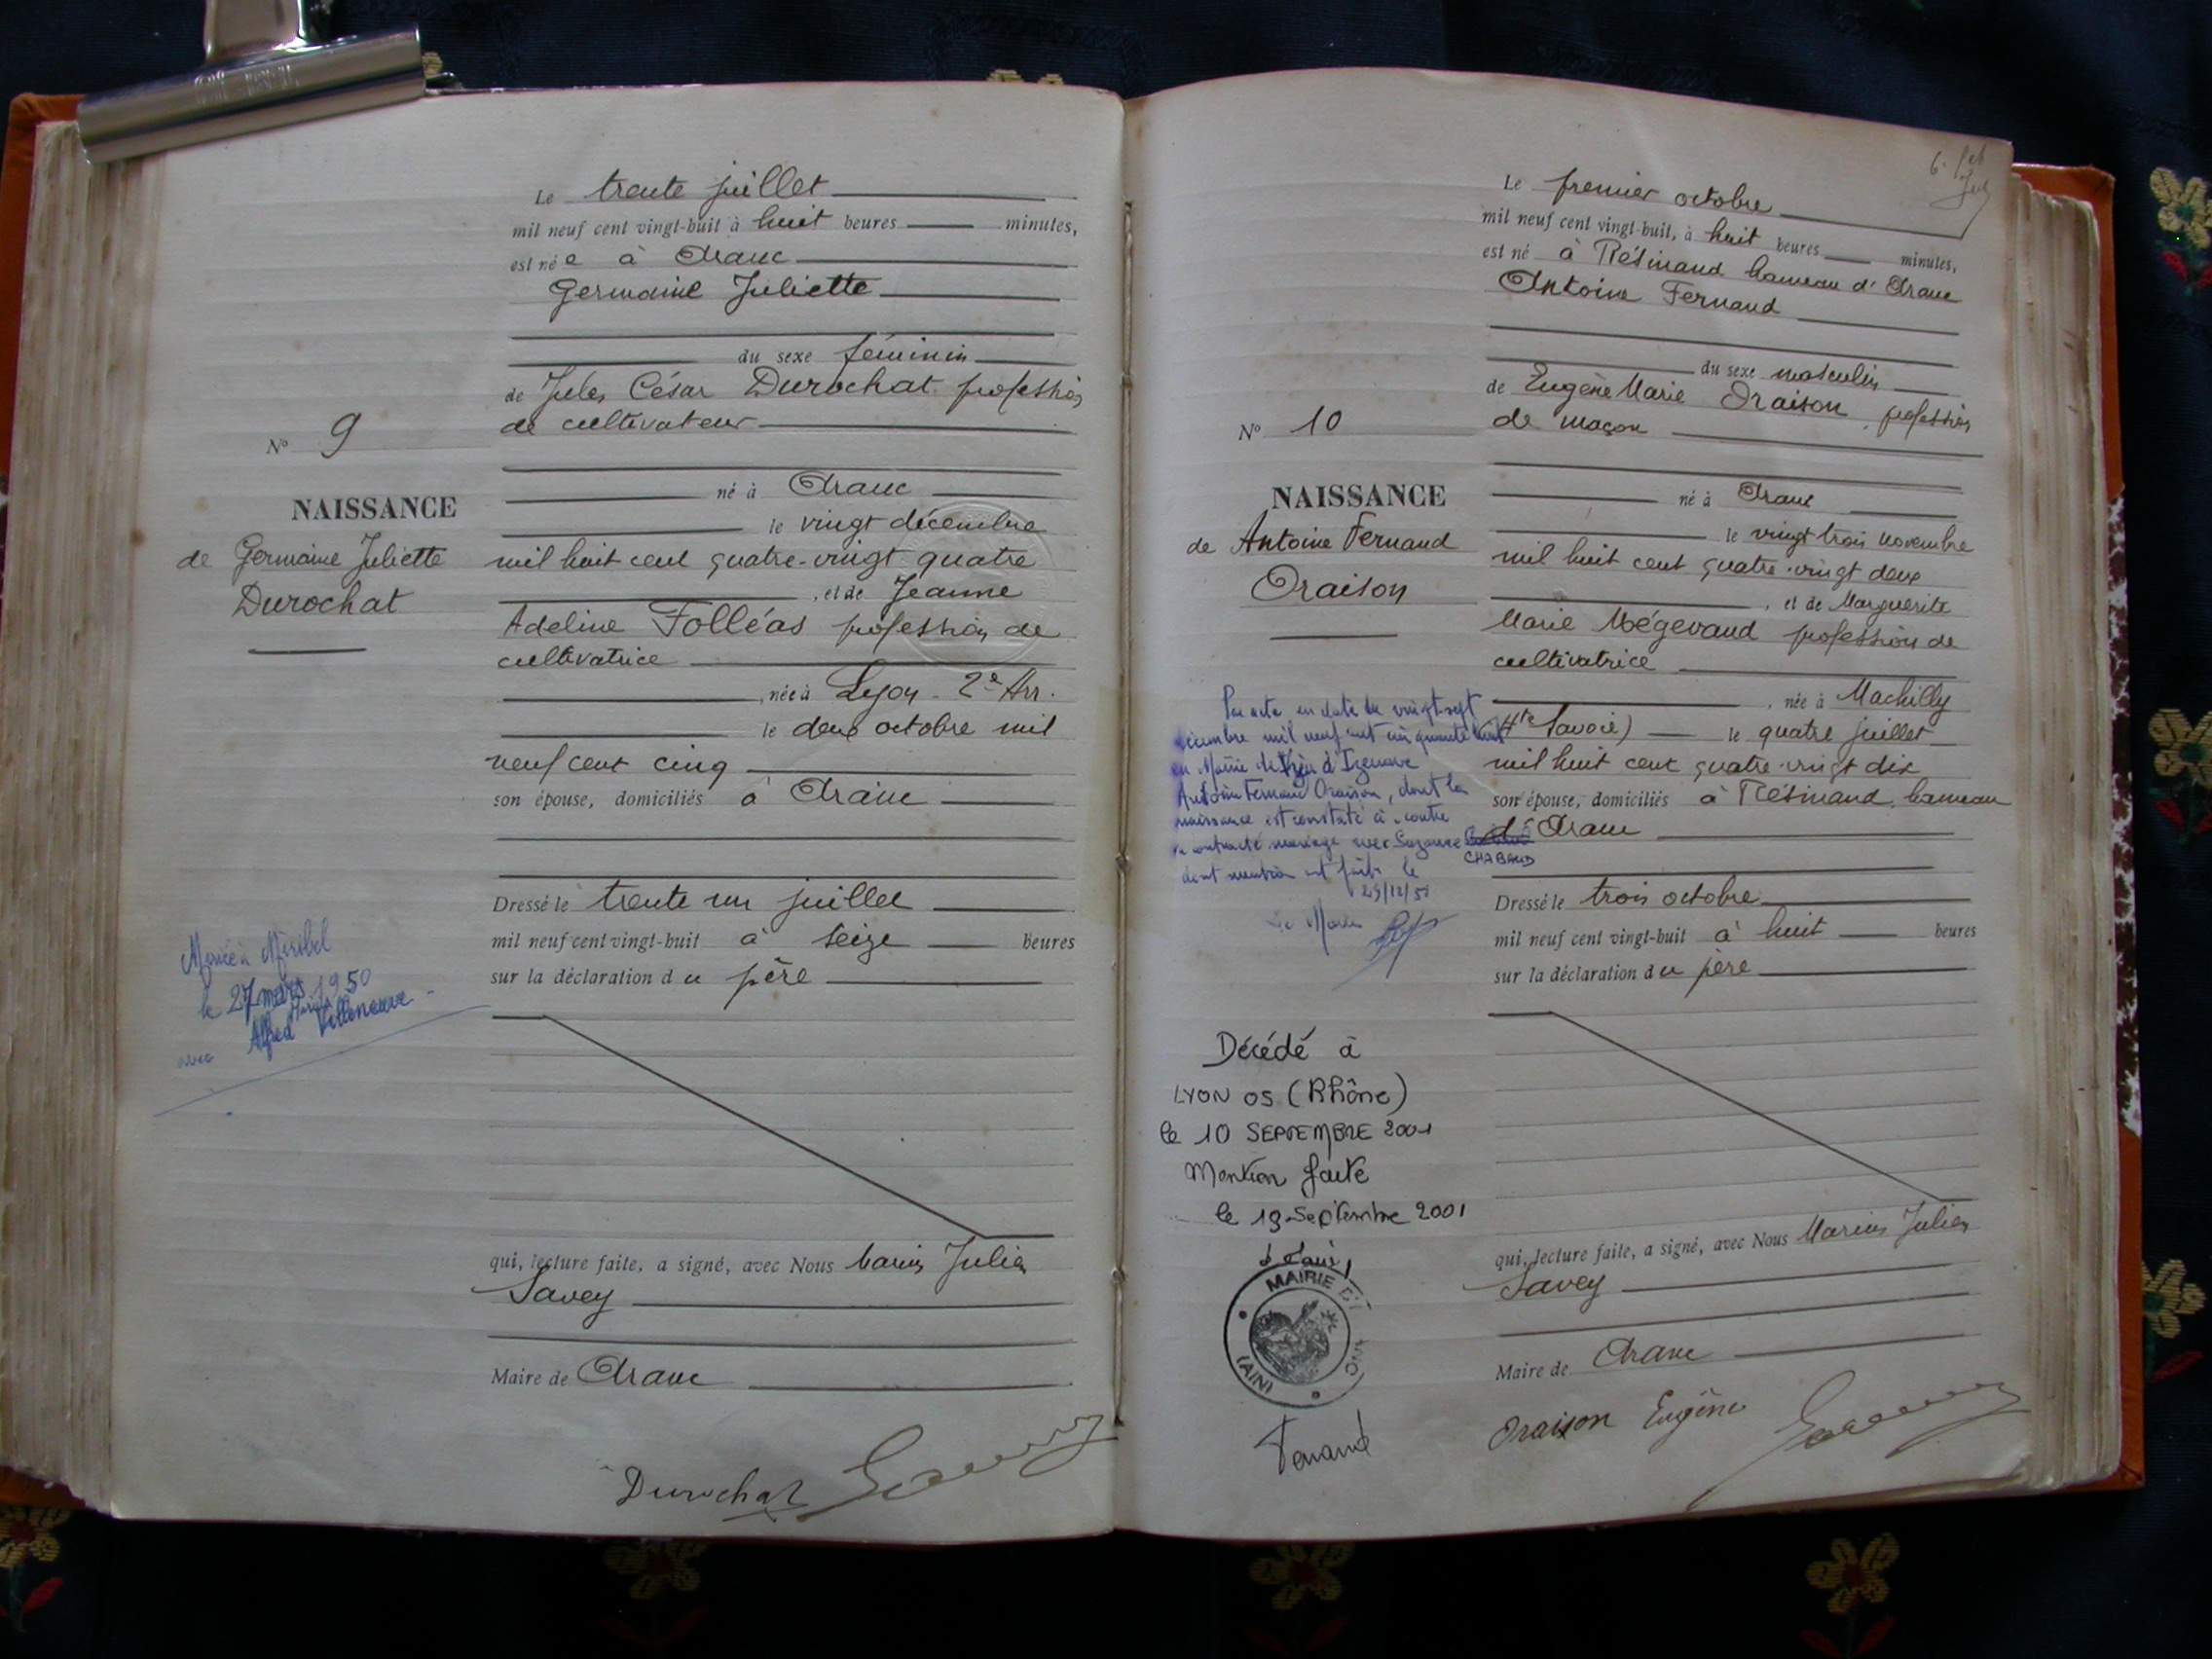 Le trente juillet
mil neuf cent vingt-huit à huit heures minutes,
est née à Aranc
Germaine Juliette
du sexe féminin
de Jules César Durochat profession
de cultivateur
né à Aranc
le vingt décembre
mil huit cent quatre-vingt quatre
, et de Jeanne
Adeline Folléas profession de
cultivatrice
, née à Lyon - 2e Arr.
le deux octobre mil
neuf cent cinq
son épouse, domiciliés à Aranc
Dressé le trente un juillet
mil neuf cent vingt-huit à seize heures
sur la déclaration du père
qui, lecture faite, a signé, avec Nous Marius Julien
Savey
Maire de Aranc
Durochat
No 9
NAISSANCE
de Germaine Juliette
Durochat
Mariée à Miribel
le 27 mars 1950
avec Alfred Villeneuve
Le premier octobre
mil neuf cent vingt-huit, à huit heures minutes,
est né à Résinand hameau d'Aranc
Antoine Fernand
du sexe masculin
de Eugène Marie Oraison, profession
de maçon
né à Aranc
le vingt trois novembre
mil huit cent quatre-vingt deux
, et de Marguerite
Marie Mégevand profession de
cultivatrice
, née à Machilly
(Hte Savoie) le quatre juillet
mil huit cent quatre-vingt dix
son épouse, domiciliés à Résinand, hameau
d'Aranc
Dressé le trois octobre
mil neuf cent vingt-huit à huit heures
sur la déclaration du père
qui, lecture faite, a signé, avec Nous Marius Julien
Savey
Maire de Aranc
Oraison Eugène
No 10
NAISSANCE
de Antoine Fernand
Oraison
Par acte en date du vingt-sept
décembre mil neuf cent cinquante
en Mairie de d'Izenave
Antoine Fernand Oraison, dont la
naissance est constatée ci-contre
a contracté mariage avec Suzanne
CHABAUD
dont mention est faite le
29/12/5
Le Maire
Décédé à
LYON 05 (Rhône)
le 10 SEPTEMBRE 2001
Mention faite
le 19 Septembre 2001
MAIRIE
(AIN)